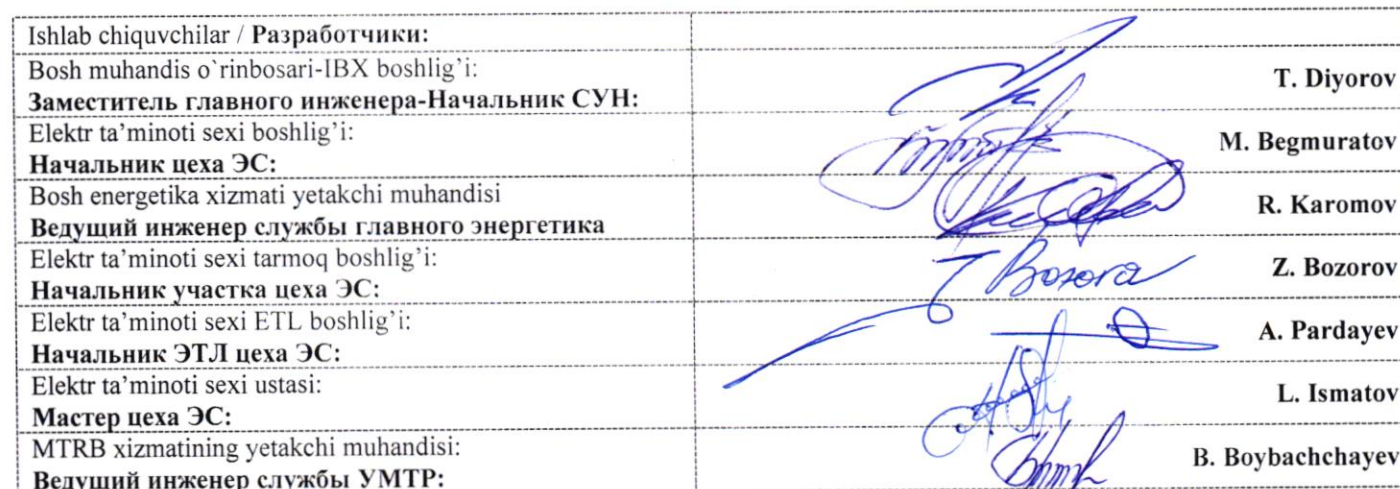 Ishlab chiquvchilar / Разработчики:
Bosh muhandis o`rinbosari-IBX boshlig’i:
Заместитель главного инженера-Начальник СУН:
T. Diyorov
Elektr ta’minoti sexi boshlig’i:
Начальник цеха ЭС:
M. Begmuratov
Bosh energetika xizmati yetakchi muhandisi
Ведущий инженер службы главного энергетика
R. Karomov
Elektr ta’minoti sexi tarmoq boshlig’i:
Начальник участка цеха ЭС:
Z. Bozorov
Elektr ta’minoti sexi ETL boshlig’i:
Начальник ЭТЛ цеха ЭС:
A. Pardayev
Elektr ta’minoti sexi ustasi:
Мастер цеха ЭС:
L. Ismatov
MTRB xizmatining yetakchi muhandisi:
Ведущий инженер службы УМТР:
B. Boybachchayev